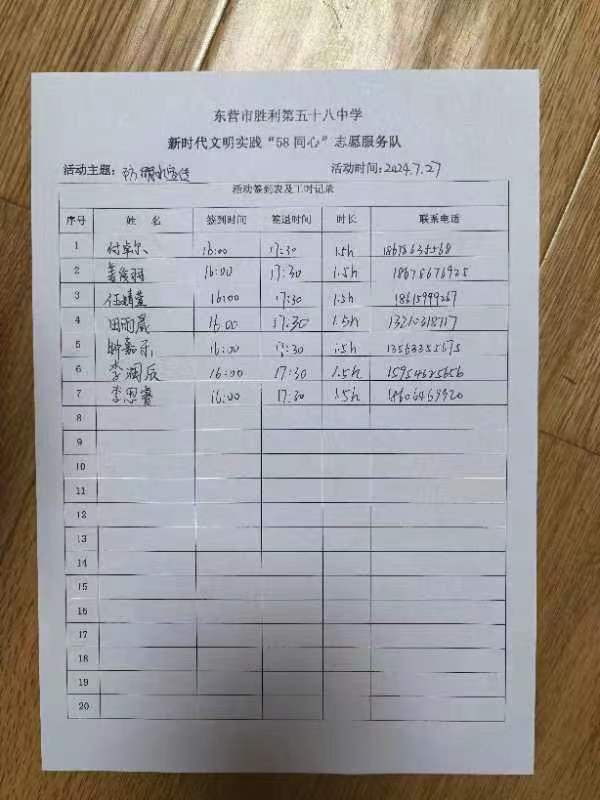 东营市胜利第五十八中学
新时代文明实践“58同心”志愿服务队
活动主题：防溺水宣传 活动时间：2024.7.27
活动签到表及工时记录
序号 姓 名 签到时间 签退时间 时长 联系电话
1 付卓尔 16:00 17:30 1.5h 18678635568
2 姜俊羽 16:00 17:30 1.5h 18678676925
3 任婧萱 16:00 17:30 1.5h 18615999267
4 田雨晟 16:00 17:30 1.5h
5 钟嘉乐 16:00 17:30 1.5h 13563355675
6 李润辰 16:00 17:30 1.5h 15954625656
7 李思睿 16:00 17:30 1.5h
8
9
10
11
12
13
14
15
16
17
18
19
20